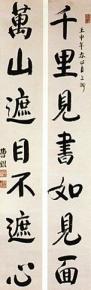 千里見書如見面
萬山遮目不遮心